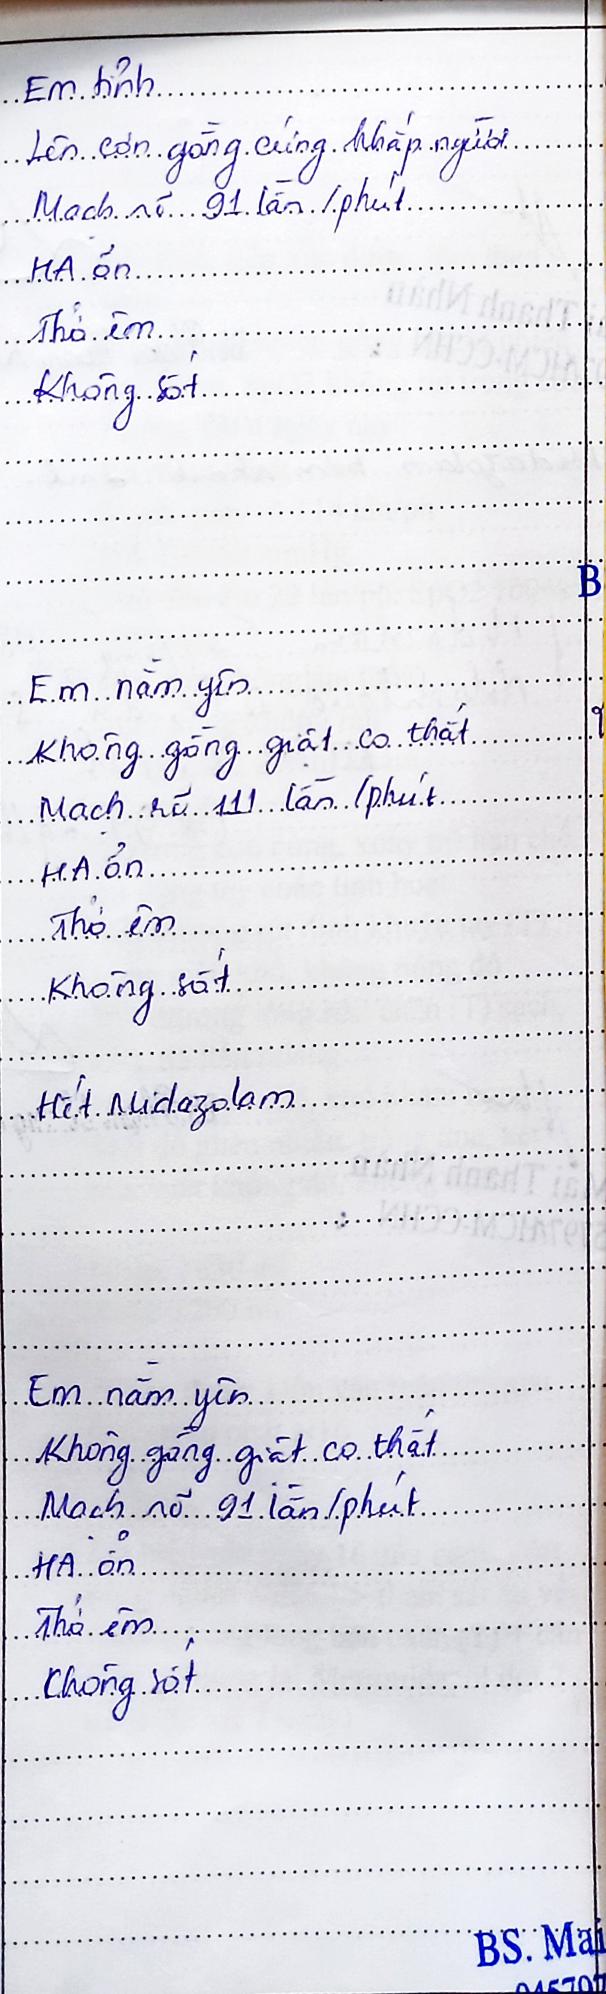 Em tỉnh
Lên cơn gồng cứng khắp người
Mạch rõ 91 lần/phút
HA ổn
Thở êm
Không sốt
B
Em nằm yên
Không gồng giật co thắt
Mạch rõ 111 lần/phút
HA ổn
Thở êm
Không sốt
Hết Midazolam
Em nằm yên
Không gồng giật co thắt
Mạch rõ 91 lần/phút
HA ổn
Thở êm
Không sốt
BS. Mai